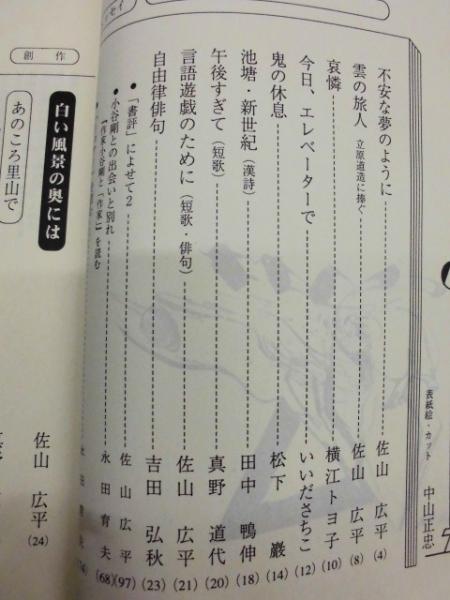 表紙絵・カット 中山正忠
不安な夢のように 佐山 広平 (4)
雲の旅人 立原道造に捧ぐ 佐山 広平 (8)
哀憐 横江トヨ子 (10)
今日、エレベーターで いいださちこ (12)
鬼の休息 松下 巖 (14)
池塘・新世紀（漢詩） 田中 鴨伸 (18)
午後すぎて（短歌） 真野 道代 (20)
言語遊戯のために（短歌・俳句） 佐山 広平 (21)
自由律俳句 吉田 弘秋 (23)
●「書評」によせて2 佐山 広平 (97)
●小谷剛との出会いと別れ 永田 育夫 (68)
『作家小谷剛と「作家」』を読む
セイ
創作
白い風景の奥には 佐山 広平 (24)
あのころ里山で